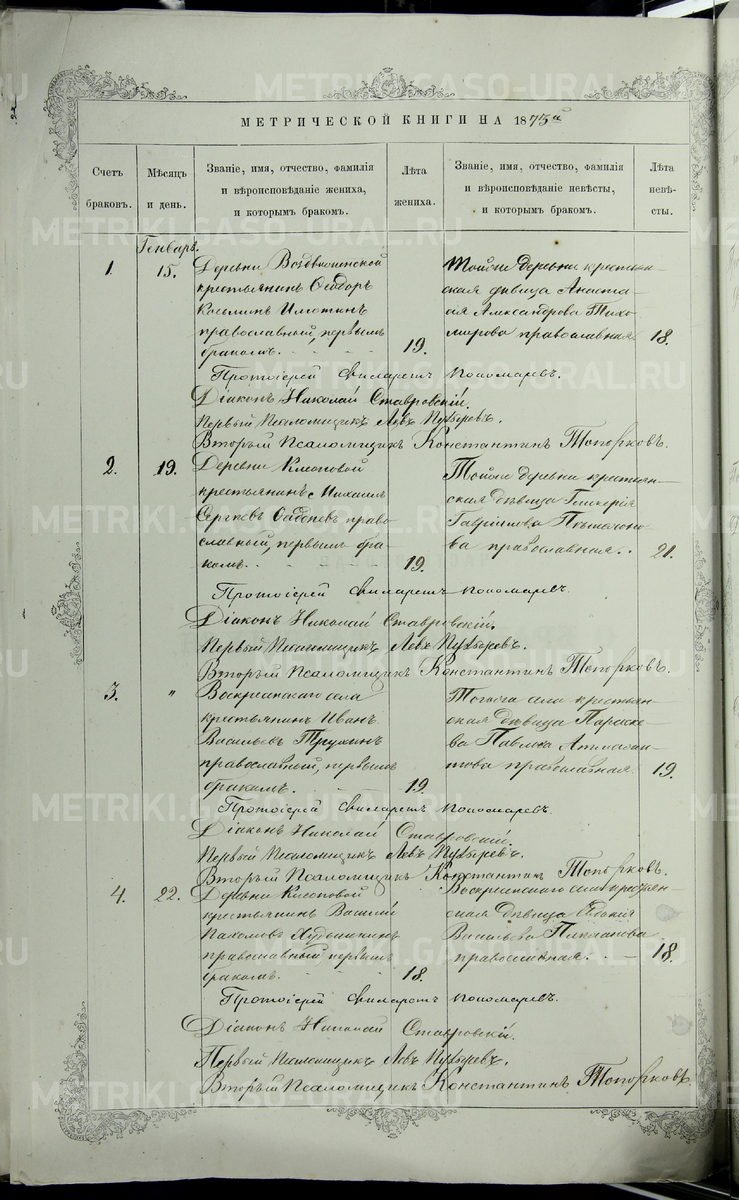 МЕТРИЧЕСКОЙ КНИГИ НА 1875й
Счетъ браковъ.
Мѣсяцъ и день.
Званіе, имя, отчество, фамилія
и вѣроисповѣданіе жениха,
и которымъ бракомъ.
Лѣта жениха.
Званіе, имя, отчество, фамилія
и вѣроисповѣданіе невѣсты,
и которымъ бракомъ.
Лѣта невѣсты.
Генварь.
1. 15. Деревни Воздвиженской
крестьянинъ Ѳеодоръ
православный, первымъ
бракомъ. 19.
Тойже деревни крестьян-
ская дѣвица Анаста-
ая Александрова Тихо-
мирова православная 18.
Протоіерей Филаретъ Пономаревъ.
Діаконъ Николай Ставровскій.
Первый Псаломщикъ Левъ Пузыревъ.
Второй Псаломщикъ Константинъ Топорковъ.
2. 19. Деревни
крестьянинъ Михаилъ
Сергѣевъ право-
славный, первымъ бра-
комъ. 19.
Тойже деревни крестьян-
ская дѣвица Гликерія
Гаврилова
ва православная. 21.
Протоіерей Филаретъ Пономаревъ.
Діаконъ Николай Ставровскій.
Первый Псаломщикъ Левъ Пузыревъ.
Второй Псаломщикъ Константинъ Топорковъ.
3. " Воскресенскаго села
крестьянинъ Иванъ
Васильевъ Трухинъ
православный, первымъ
бракомъ. 19.
Тогоже села крестьян-
ская дѣвица Параске-
ва Павлова
това православная. 19.
Протоіерей Филаретъ Пономаревъ.
Діаконъ Николай Ставровскій.
Первый Псаломщикъ Левъ Пузыревъ.
Второй Псаломщикъ Константинъ Топорковъ.
4. 22. Деревни
крестьянинъ Василій
Пахомовъ
православный первымъ
бракомъ. 18.
Воскресенского села крестьян-
ская дѣвица Евдокія
Васильева
православная. 18.
Протоіерей Филаретъ Пономаревъ.
Діаконъ Николай Ставровскій.
Первый Псаломщикъ Левъ Пузыревъ.
Второй Псаломщикъ Константинъ Топорковъ.
METRIKI.GASO-URAL.RU